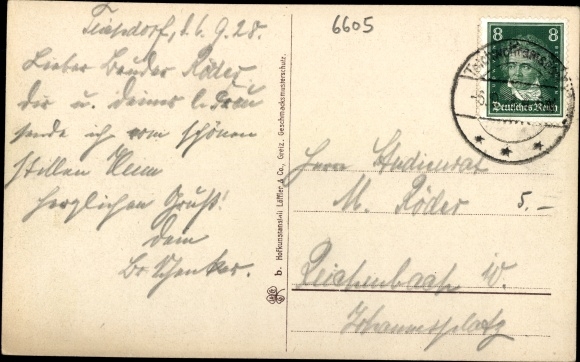 d. 6. 9. 28.
Lieber Bruder Röder,
dir u. deiner l. Frau
sende ich vom schönen
stillen Heim
herzlichen Gruß!
dein
Br. Schenker.
b. Hofkunstanstalt Löffler & Co., Greiz. Geschmacksmusterschutz.
6605
8 8
Deutsches Reich
Herrn Studienrat
M. Röder
5.-
Reichenbach i. V.
Johannesplatz